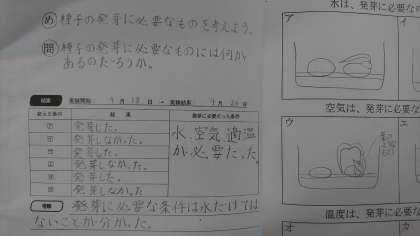 め 種子の発芽に必要なものを考えよう。
問 種子の発芽に必要なものには何が
あるのだろうか。
結果 実験開始 月 日 → 実験結果 月 日
変えた条件 結果 発芽に必要な条件
ア 発芽した。
イ 発芽しなかった。
ウ 発芽した。
エ 発芽しなかった。
オ 発芽した。
カ 発芽しなかった
水、空気、適温
が必要だった。
考察 発芽に必要な条件は水だけでは
ないことが分かった。
水は、発芽に必要な
ア イ
空気は、発芽に必要な
ウ エ
温度は、発芽に必要な
オ カ